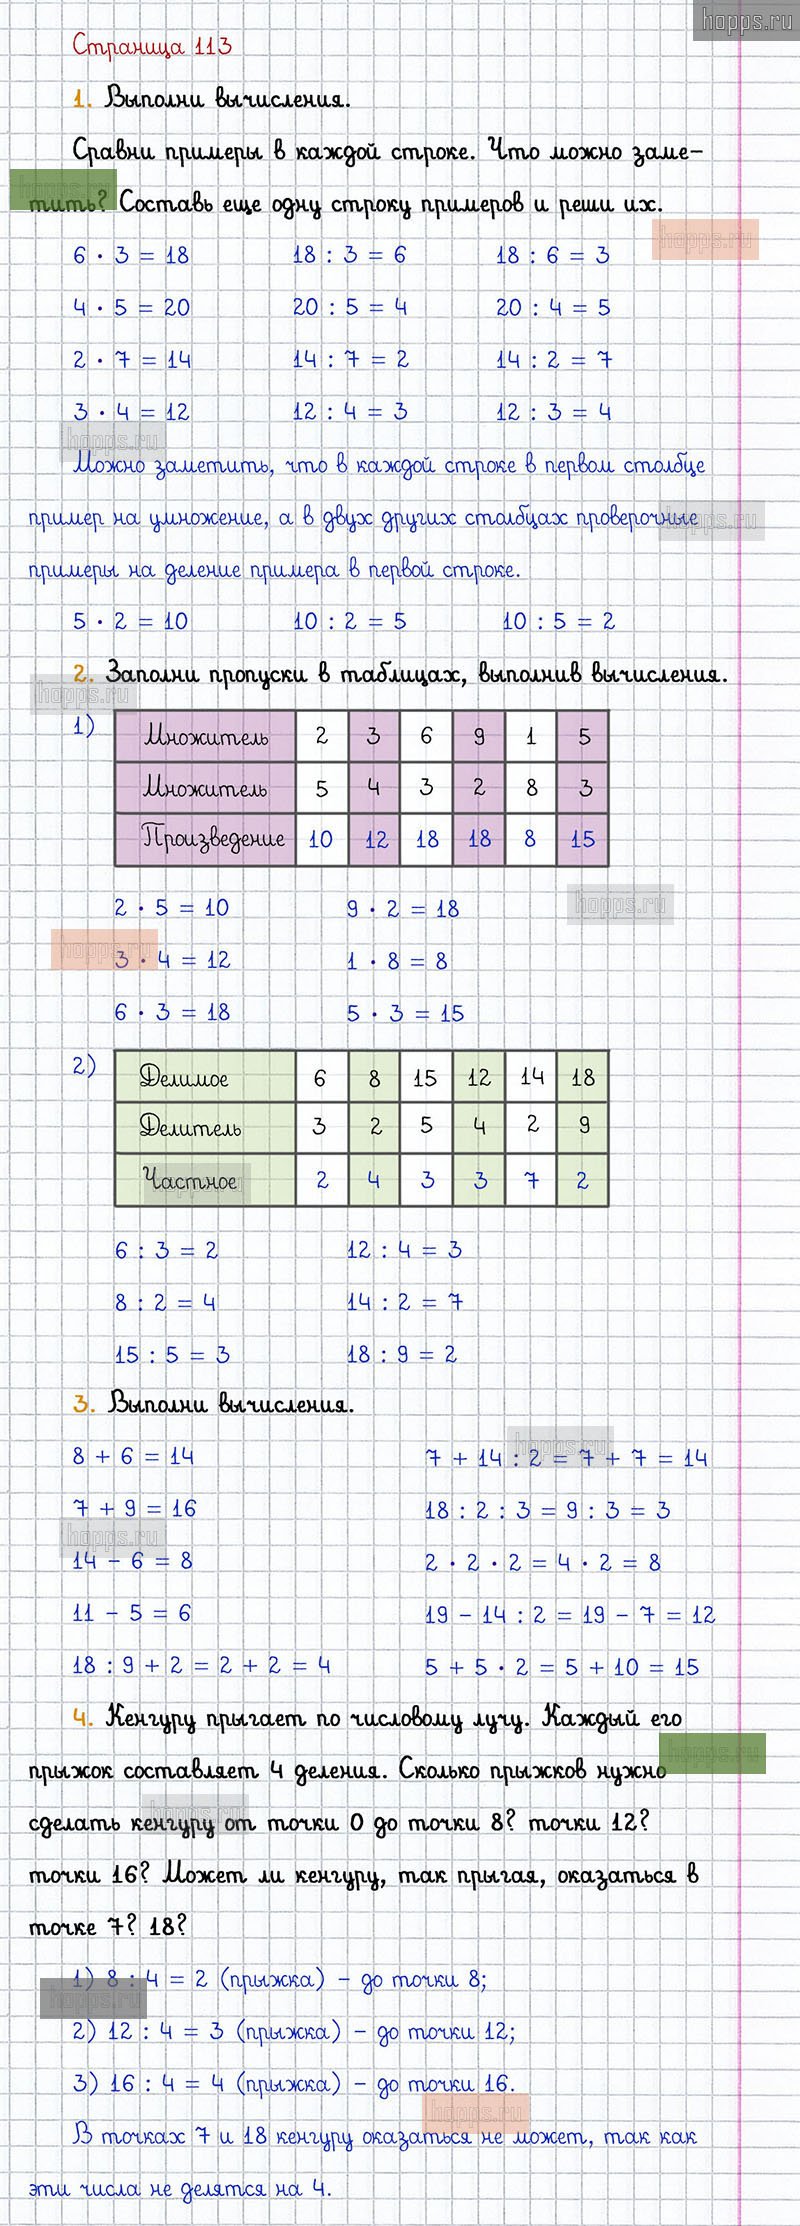 hopps.ru
Страница 113
1. Выполни вычисления.
Сравни примеры в каждой строке. Что можно заме-
hopps.ru
тить? Составь еще одну строку примеров и реши их.
hopps.ru
6 · 3 = 18 18 : 3 = 6 18 : 6 = 3
4 · 5 = 20 20 : 5 = 4 20 : 4 = 5
2 · 7 = 14 14 : 7 = 2 14 : 2 = 7
3 · 4 = 12 12 : 4 = 3 12 : 3 = 4
hopps.ru
Можно заметить, что в каждой строке в первом столбце
пример на умножение, а в двух других столбцах проверочные
hopps.ru
примеры на деление примера в первой строке.
5 · 2 = 10 10 : 2 = 5 10 : 5 = 2
2. Заполни пропуски в таблицах, выполнив вычисления.
hopps.ru
1)
Множитель 2 3 6 9 1 5
Множитель 5 4 3 2 8 3
Произведение 10 12 18 18 8 15
2 · 5 = 10 9 · 2 = 18
hopps.ru
hopps.ru
3 · 4 = 12 1 · 8 = 8
6 · 3 = 18 5 · 3 = 15
2)
Делимое 6 8 15 12 14 18
Делитель 3 2 5 4 2 9
Частное 2 4 3 3 7 2
hopps.ru
6 : 3 = 2 12 : 4 = 3
8 : 2 = 4 14 : 2 = 7
15 : 5 = 3 18 : 9 = 2
3. Выполни вычисления.
hopps.ru
8 + 6 = 14 7 + 14 : 2 = 7 + 7 = 14
7 + 9 = 16 18 : 2 : 3 = 9 : 3 = 3
hopps.ru
14 - 6 = 8 2 · 2 · 2 = 4 · 2 = 8
11 - 5 = 6 19 - 14 : 2 = 19 - 7 = 12
18 : 9 + 2 = 2 + 2 = 4 5 + 5 · 2 = 5 + 10 = 15
4. Кенгуру прыгает по числовому лучу. Каждый его
hopps.ru
прыжок составляет 4 деления. Сколько прыжков нужно
hopps.ru
сделать кенгуру от точки 0 до точки 8? точки 12?
точки 16? Может ли кенгуру, так прыгая, оказаться в
точке 7? 18?
1) 8 : 4 = 2 (прыжка) - до точки 8;
hopps.ru
2) 12 : 4 = 3 (прыжка) - до точки 12;
3) 16 : 4 = 4 (прыжка) - до точки 16.
hopps.ru
В точках 7 и 18 кенгуру оказаться не может, так как
эти числа не делятся на 4.